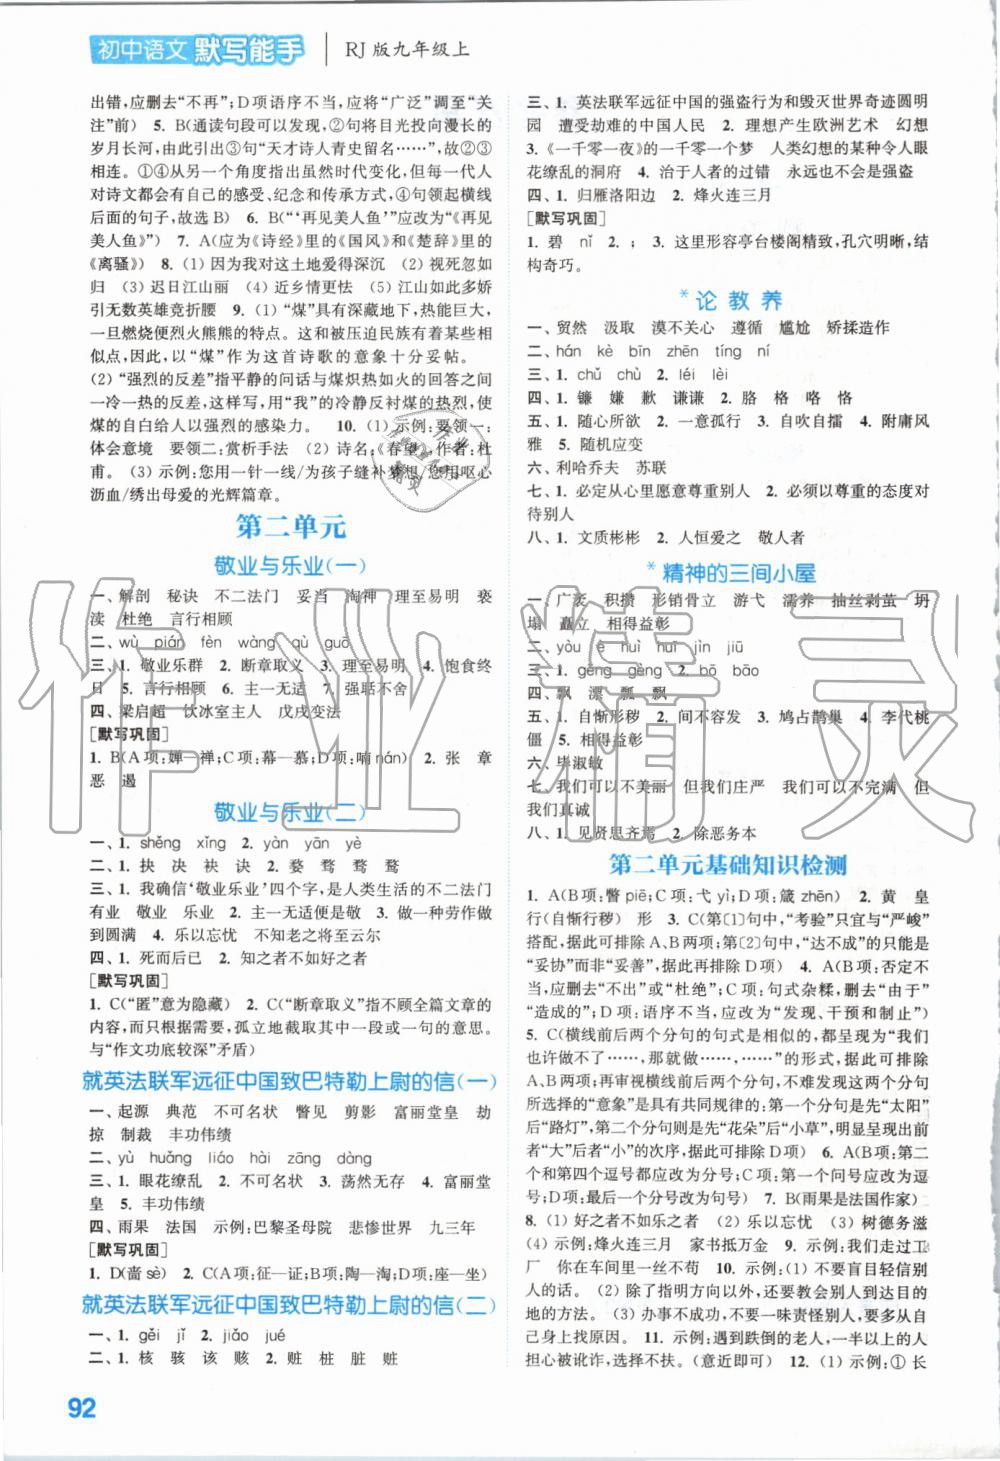 初中语文 默写能手 RJ版九年级上
出错,应删去“不再”;D项语序不当,应将“广泛”调至“关
注”前) 5. B(通读句段可以发现,②句将目光投向漫长的
岁月长河,由此引出③句“天才诗人青史留名……”,故②③
相连。①④从另一个角度指出虽然时代变化,但每代人都
对诗文都会有自己的感受、纪念和传承方式,④句领起横线
后面的句子,故选B) 6. B(“‘再见美人鱼’”应改为“《再见
美人鱼》”) 7. A(应为《诗经》里的《国风》和《楚辞》里的
《离骚》) 8. (1) 因为我对这土地爱得深沉 (2) 视死忽如
归 (3) 迟日江山丽 (4) 近乡情更怯 (5) 江山如此多娇
引无数英雄竞折腰 9. (1) “煤”具有深藏地下,热能巨大,
一旦燃烧便烈火熊熊的特点。这和被压迫民族有着某些相
似点,因此,以“煤”作为这首诗歌的意象十分妥帖。
(2) “强烈的反差”指平静的问话与煤炽热如火的回答之间
一冷一热的反差,这样写,用“我”的冷静反衬煤的热烈,使
煤的自白给人以强烈的感染力。 10. (1) 示例:要领一:
体会意境 要领二:赏析手法 (2) 诗名:《春望》,作者:杜
甫。(3) 示例:您用一针一线/为孩子缝补梦想/您用呕心
沥血/绣出母爱的光辉篇章。
第二单元
敬业与乐业(一)
一、解剖 秘诀 不二法门 妥当 淘神 理至易明 亵
渎 杜绝 言行相顾
二、wù pián fèn wàng qù guō
三、1. 敬业乐群 2. 断章取义 3. 理至易明 4. 饱食终
日 5. 言行相顾 6. 主一无适 7. 强聒不舍
四、梁启超 饮冰室主人 戊戌变法
[默写巩固]
1. B(A项:婵—禅;C项:幕—慕;D项:喃nán) 2. 张 章
恶 遏
敬业与乐业(二)
一、1. shěng xǐng 2. yàn yān yè
二、1. 抉 决 袂 诀 2. 婺 骛 鹜 鹜
三、1. 我确信‘敬业乐业’四个字,是人类生活的不二法门
有业 敬业 乐业 2. 主一无适便是敬 3. 做一种劳作做
到圆满 4. 乐以忘忧 不知老之将至云尔
四、1. 死而后已 2. 知之者不如好之者
[默写巩固]
1. C(“匿”意为隐藏) 2. C(“断章取义”指不顾全篇文章的
内容,而只根据需要,孤立地截取其中一段或一句的意思。
与“作文功底较深”矛盾)
就英法联军远征中国致巴特勒上尉的信(一)
一、起源 典范 不可名状 瞥见 剪影 富丽堂皇 劫
掠 制裁 丰功伟绩
二、yù huǎng liáo hài zāng dàng
三、1. 眼花缭乱 2. 不可名状 3. 荡然无存 4. 富丽堂
皇 5. 丰功伟绩
四、雨果 法国 示例:巴黎圣母院 悲惨世界 九三年
[默写巩固]
1. D(啬sè) 2. C(A项:征—证;B项:陶—淘;D项:座—坐)
就英法联军远征中国致巴特勒上尉的信(二)
一、1. gěi jǐ 2. jiǎo jué
二、1. 核 骇 该 赅 2. 赃 桩 脏 赃
三、1. 英法联军远征中国的强盗行为和毁灭世界奇迹圆明
园 遭受劫难的中国人民 2. 理想产生欧洲艺术 幻想
3. 《一千零一夜》的一千零一个梦 人类幻想的某种令人
眼花缭乱的洞府 4. 治于人者的过错 永远也不会是强盗
四、1. 归雁洛阳边 2. 烽火连三月
[默写巩固]
1. 碧 nǐ 2. ; 3. 这里形容亭台楼阁精致,孔穴明晰,结
构奇巧。
*论教养
一、贸然 汲取 漠不关心 遵循 尴尬 矫揉造作
二、hán kè bīn zhēn tíng ní
三、1. chǔ chù 2. léi lèi
四、1. 镰 嫌 歉 谦谦 2. 胳 格 咯 恪
五、1. 随心所欲 2. 一意孤行 3. 自吹自擂 4. 附庸风
雅 5. 随机应变
六、利哈乔夫 苏联
七、1. 必定从心里愿意尊重别人 2. 必须以尊重的态度对
待别人
八、1. 文质彬彬 2. 人恒爱之 敬人者
*精神的三间小屋
一、广袤 积攒 形销骨立 游弋 濡养 抽丝剥茧 坍
塌 矗立 相得益彰
二、yòu è huì huī jìn jiū
三、1. gēng gèng 2. bō bāo
四、飘 漂 瓢 飘
五、1. 自惭形秽 2. 间不容发 3. 鸠占鹊巢 4. 李代桃
僵 5. 相得益彰
六、毕淑敏
七、我们可以不美丽 但我们庄严 我们可以不完满 但
我们真诚
八、1. 见贤思齐焉 2. 除恶务本
第二单元基础知识检测
1. A(B项:瞥piē;C项:弋yì;D项:箴zhēn) 2. 黄 皇
行(自惭行秽) 形 3. C(第〔1〕句中,“考验”只宜与“严峻”
搭配,据此可排除A、B两项;第〔2〕句中,“达不成”的只能是
“妥协”而非“妥善”,据此可排除D项) 4. A(B项:否定不
当,应删去“不出”或“杜绝”;C项:句式杂糅,删去“由于”
“造成的”;D项:语序不当,应改为“发现、干预和制止”)
5. C(横线前后两个分句的句式是相似的,都呈现为“我们
也许做不了……,那就做……,……,……”的形式,据此可排除
A、B两项;再审视横线前后的两个分句,不难发现,分句中
所选择的“意象”是具有共同规律的:第一个分句是先“太阳”
后“路灯”,第二个分句则是先“花朵”后“小草”,即都呈现前
者“大”后者“小”的次序,据此可排除D项) 6. A(B项:第三
个和第四个逗号都应改为分号;C项:第一个问号应改为逗
号;D项:最后一个分号应改为句号) 7. B(雨果是法国作家)
8. (1) 好之者不如乐之者 (2) 乐以忘忧 (3) 树德务滋
(4) 示例:烽火连三月 家书抵万金 9. 示例:我们走过工
厂 你在车间里一丝不苟 10. 示例:(1) 不要盲目轻信别
人的话。(2) 除了指明方向以外,还要教会别人到达目的
地的方法。(3) 办事不成功,不要一味责怪别人,要多从自
己身上找原因。 11. 示例:遇到跌倒的老人,一半以上的人
担心被讹诈,选择不扶。(意近即可) 12. (1) 示例:① 长
92
作业精灵